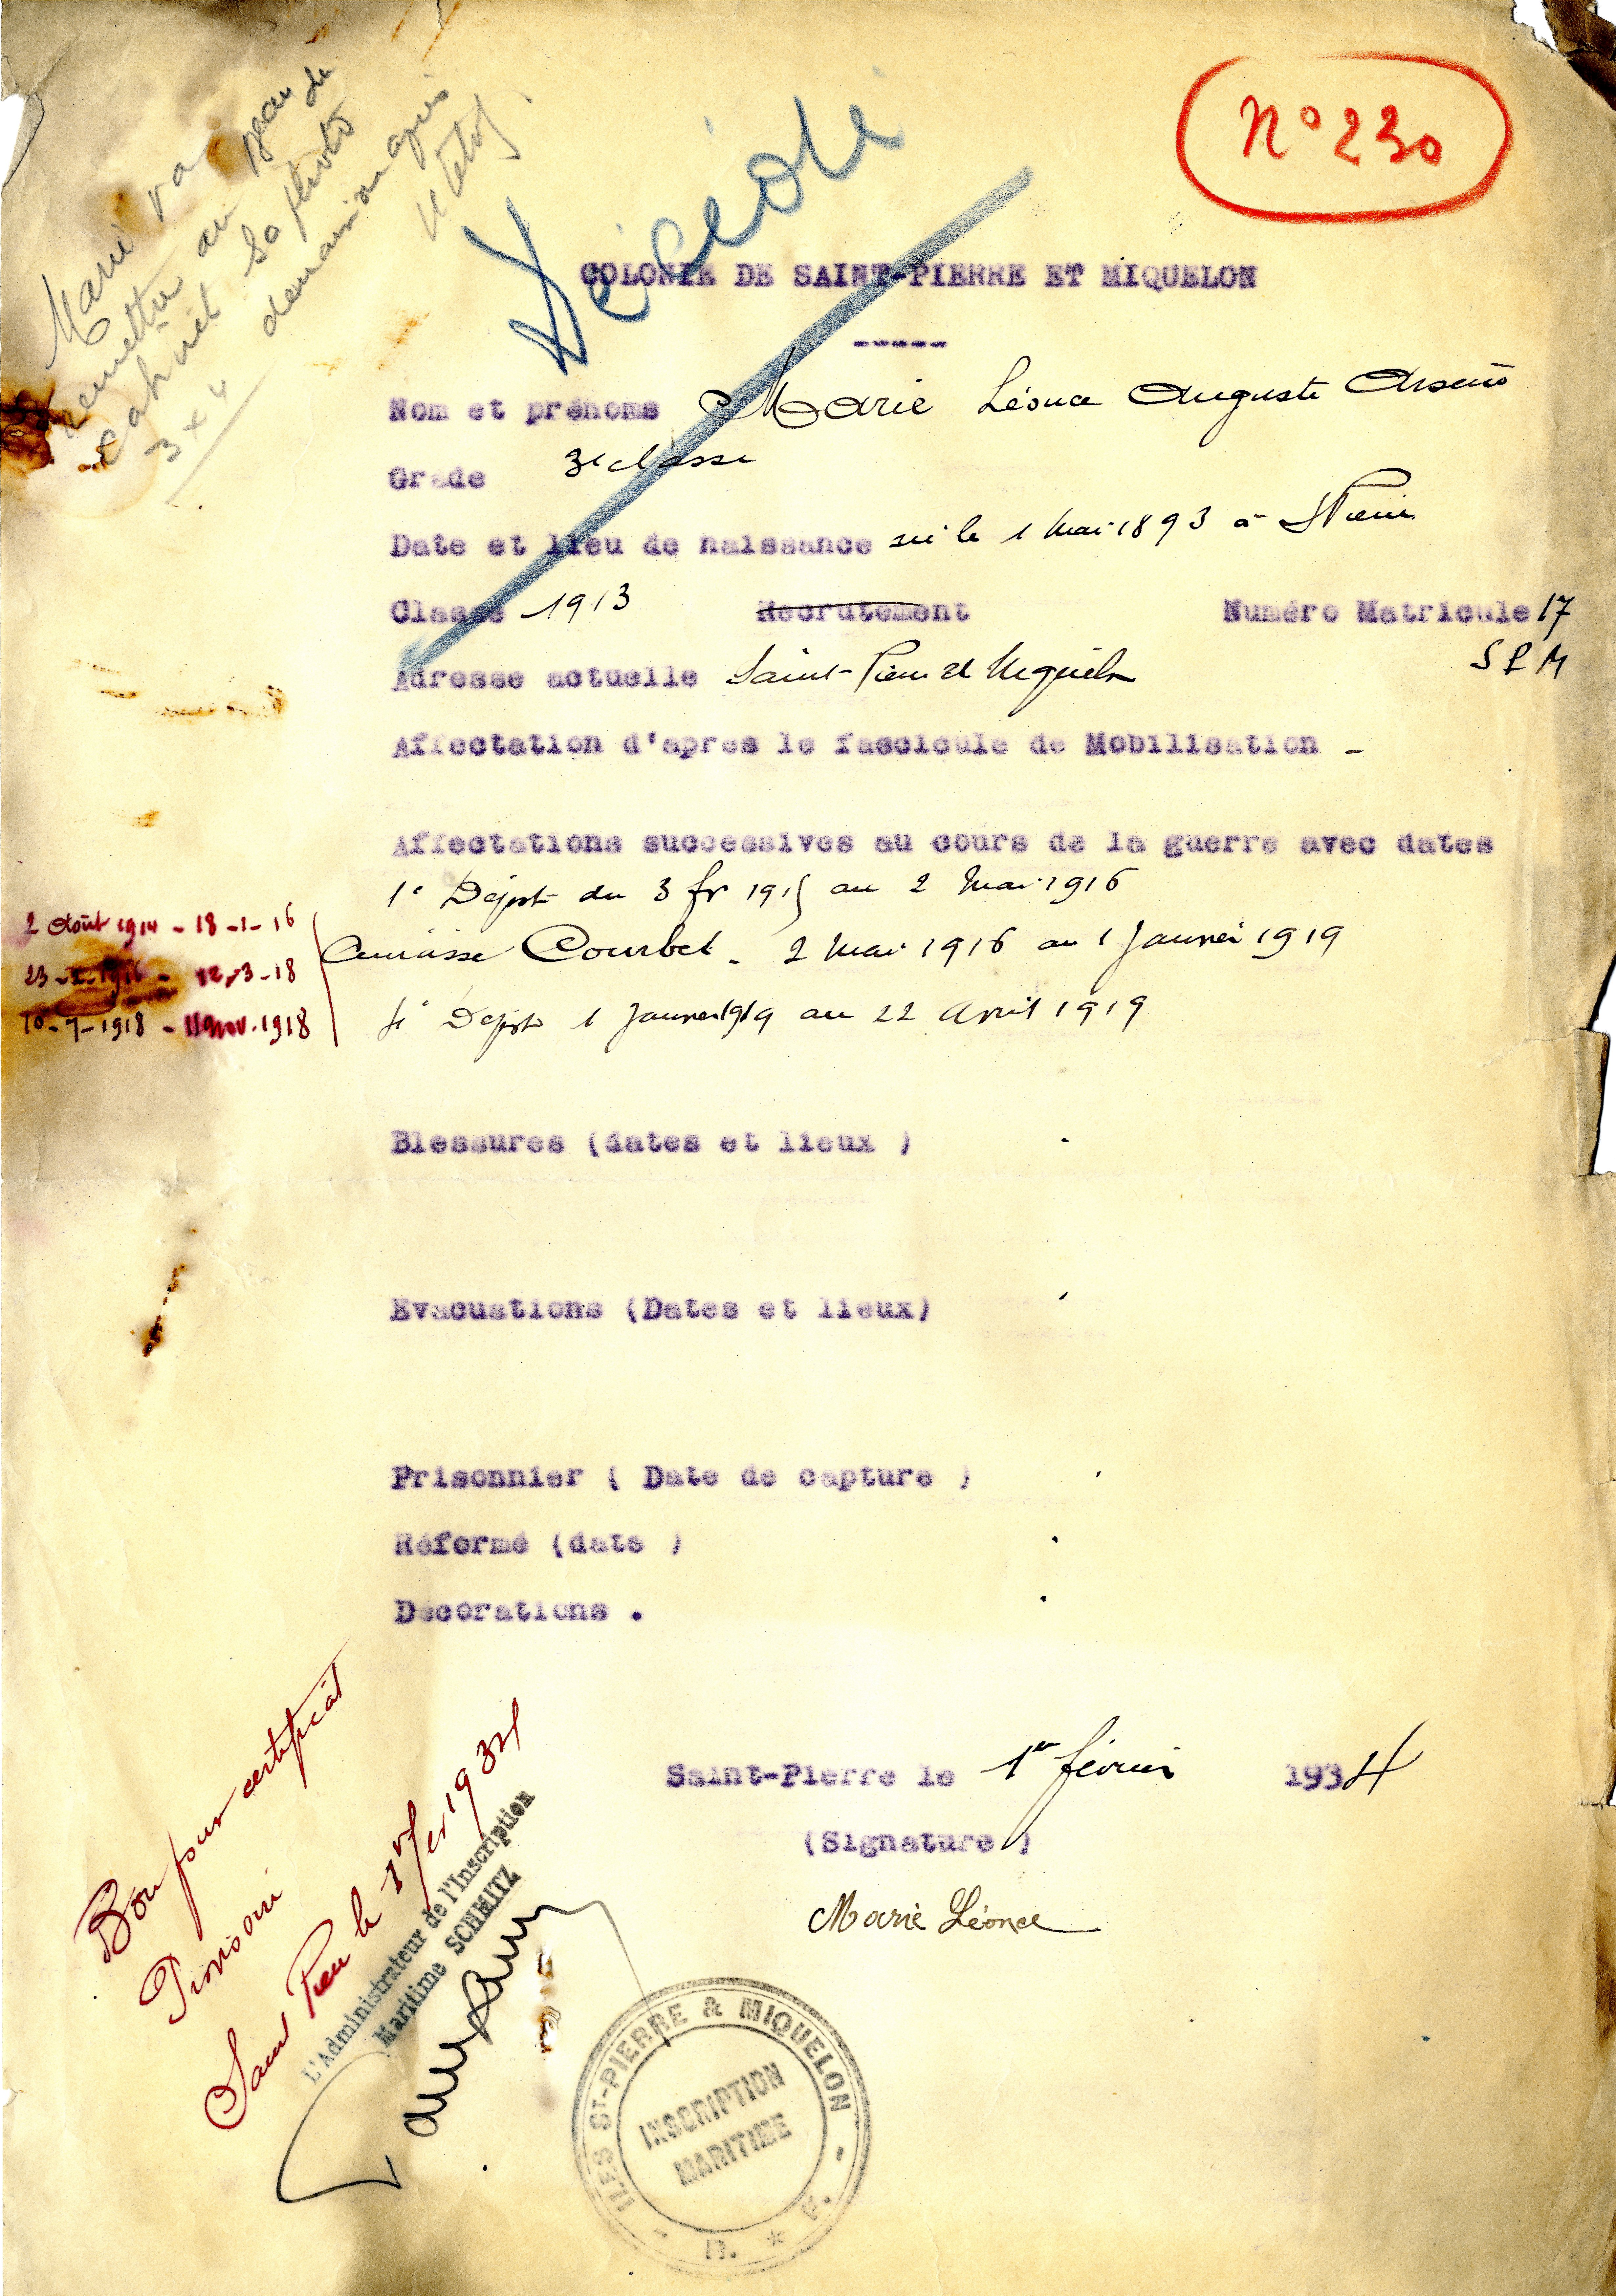 Marie va
remettre au bureau du
cabinet sa photo
3 x 4 demain ou après
Décédé
N° 230
COLONIE DE SAINT-PIERRE ET MIQUELON
-----
Nom et prénoms Marie Léonce Auguste Arsène
Grade 3e classe
Date et lieu de naissance né le 1 Mai 1893 à St Pierre
Classe 1913 Recrutement Numéro Matricule 17
SPM
Adresse actuelle Saint-Pierre et Miquelon
Affectation d'après le fascicule de Mobilisation -
Affectations successives au cours de la guerre avec dates
1e Dépot du 3 fr 1915 au 2 Mai 1916
2 Août 1914 - 18-1-16
Cuirassé Courbet - 2 Mai 1916 au 1 Janvier 1919
23-2-1916 - 12-3-18
10-7-1918 - 11 Nov. 1918
Dépot 1 Janvier 1919 au 22 Avril 1919
Blessures (dates et lieux )
Evacuations (Dates et lieux)
Prisonnier ( Date de capture )
Réformé (date )
Décorations .
Saint-Pierre le 1er février 1934
(Signature )
Marie Léonce
Bon pour certificat
Provisoire
Saint Pierre le 1er fer 1934
L'Administrateur de l'Inscription
Maritime SCHMITZ
ILES ST-PIERRE & MIQUELON
INSCRIPTION
MARITIME